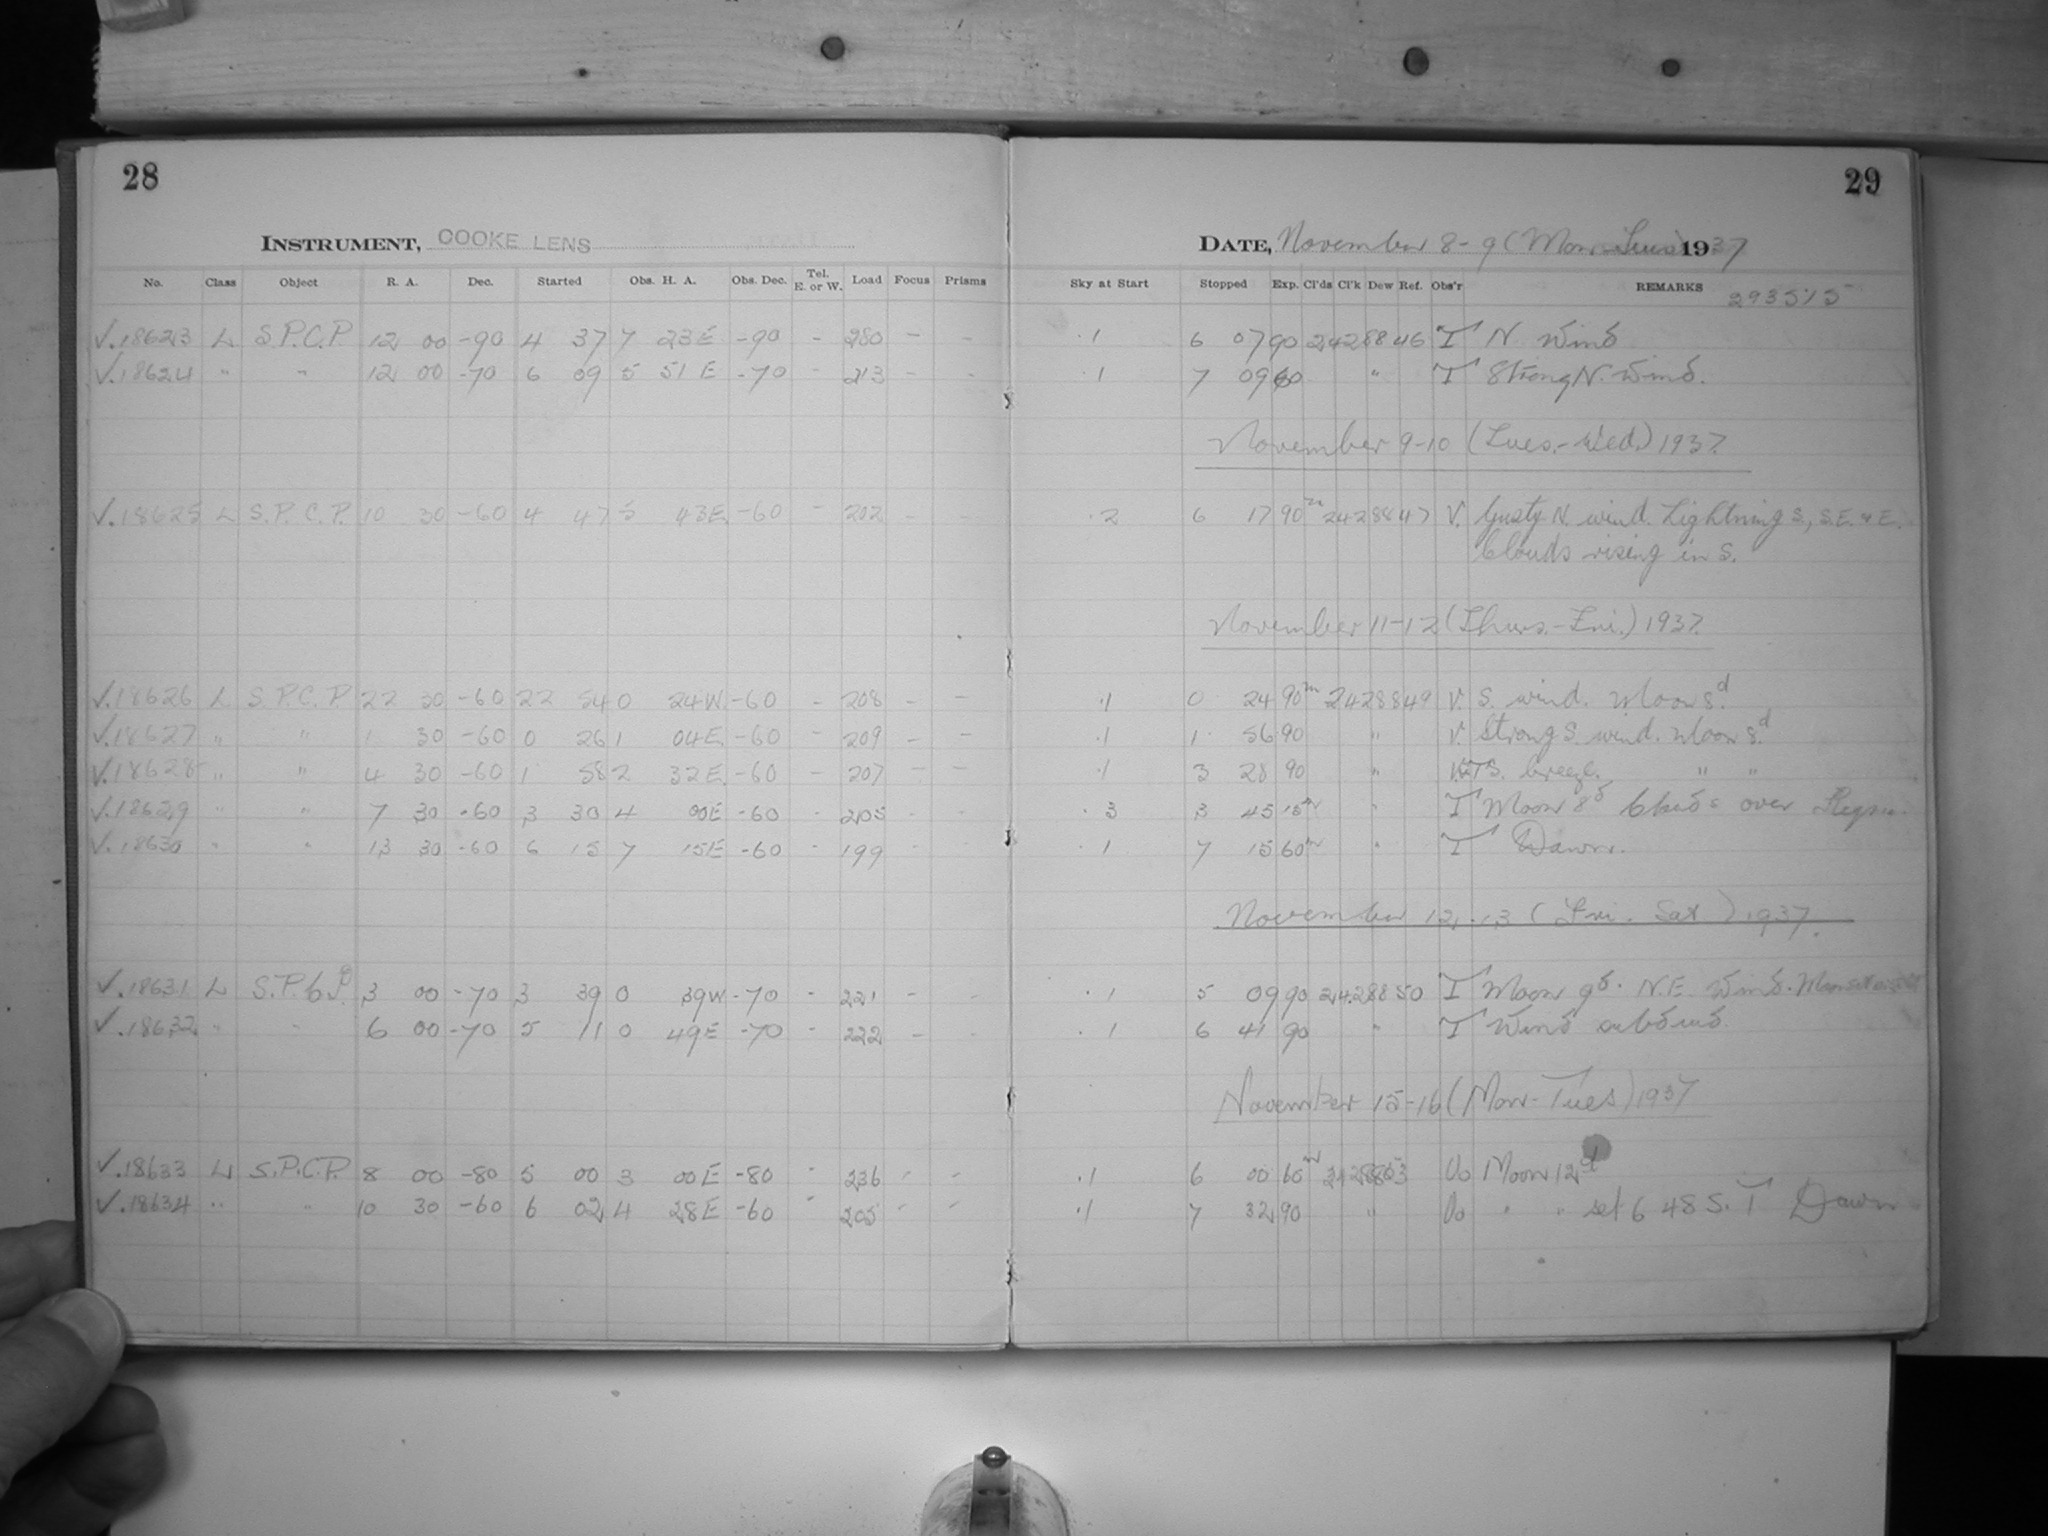 28
INSTRUMENT, COOKE LENS
No. Class Object R. A. Dec. Started Obs. H. A. Obs. Dec. Tel. E. or W. Load Focus Prisms
√.18623 L S.P.C.P. 12 00 -90 4 37 7 23E -90 - 280 - -
√.18624 " " 12 00 -70 6 09 5 51E -70 - 213 - -
√.18625 L S.P.C.P. 10 30 -60 4 47 5 43E -60 - 202 - -
√.18626 L S.P.C.P 22 30 -60 22 54 0 24W -60 - 208 - -
√.18627 " " 1 30 -60 0 26 1 04E -60 - 209 - -
√.18628 " " 4 30 -60 1 58 2 32E -60 - 207 - -
√.18629 " " 7 30 -60 3 30 4 00E -60 - 205 - -
√.18630 " " 13 30 -60 6 15 7 15E -60 - 199 - -
√.18631 L S.P.C.P. 3 00 -70 3 39 0 39W -70 - 221 - -
√.18632 " " 6 00 -70 5 11 0 49E -70 - 222 - -
√.18633 L S.P.C.P. 8 00 -80 5 00 3 00E -80 - 236 - -
√.18634 " " 10 30 -60 6 02 4 28E -60 - 205 - -
29
DATE, November 8-9 (Mon-Tues) 1937
Sky at Start Stopped Exp. Cl'ds Cl'k Dew Ref. Obs'r REMARKS
293515
.1 6 07 90 2428846 T N. Wind
.1 7 09 60 " T Strong N. Wind.
November 9-10 (Tues.-Wed.) 1937.
.2 6 17 90m 2428847 V. Gusty N. wind. Lightning S., S.E. & E.
Clouds rising in S.
November 11-12 (Thurs.-Fri.) 1937.
.1 0 24 90m 2428849 V. S. wind. Moon 8d
.1 1 56 90 " V. Strong S. wind. Moon 8d.
.1 3 28 90 " V.&T S. breeze. " "
.3 3 45 15m " T Moon 8d Clouds over
.1 7 15 60m " T Dawn.
November 12-13 (Fri. Sat) 1937.
.1 5 09 90 2428850 T Moon 9d. N.E. Wind.
.1 6 41 90 " T Wind subsided
November 15-16 (Mon-Tues) 1937
.1 6 00 60m 2428853 Moon 12d
.1 7 32 90 " " " set 6 48 S.T Dawn